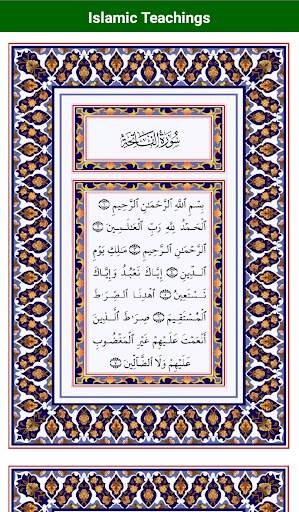 Islamic Teachings
سُورَةُ الفَاتِحَةِ
بِسْمِ ٱللَّهِ ٱلرَّحْمَٰنِ ٱلرَّحِيمِ ۝١
ٱلْحَمْدُ لِلَّهِ رَبِّ ٱلْعَٰلَمِينَ ۝٢
ٱلرَّحْمَٰنِ ٱلرَّحِيمِ ۝٣ مَٰلِكِ يَوْمِ
ٱلدِّينِ ۝٤ إِيَّاكَ نَعْبُدُ وَإِيَّاكَ
نَسْتَعِينُ ۝٥ ٱهْدِنَا ٱلصِّرَٰطَ
ٱلْمُسْتَقِيمَ ۝٦ صِرَٰطَ ٱلَّذِينَ
أَنْعَمْتَ عَلَيْهِمْ غَيْرِ ٱلْمَغْضُوبِ
عَلَيْهِمْ وَلَا ٱلضَّآلِّينَ ۝٧